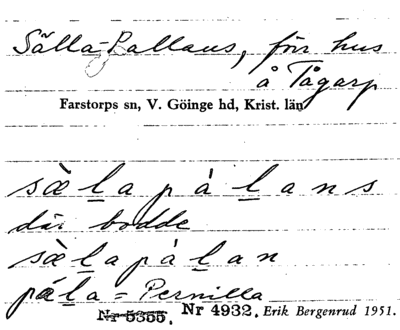 Sälla-Pallans, förr hus
å Tågarp
Farstorps sn, V. Göinge hd, Krist. län
sæ̀l̲apál̲ans
där bodde
sæ̀l̲apàl̲an
pál̲a = Pernilla
Nr 5355. Nr 4932. Erik Bergenrud 1951.